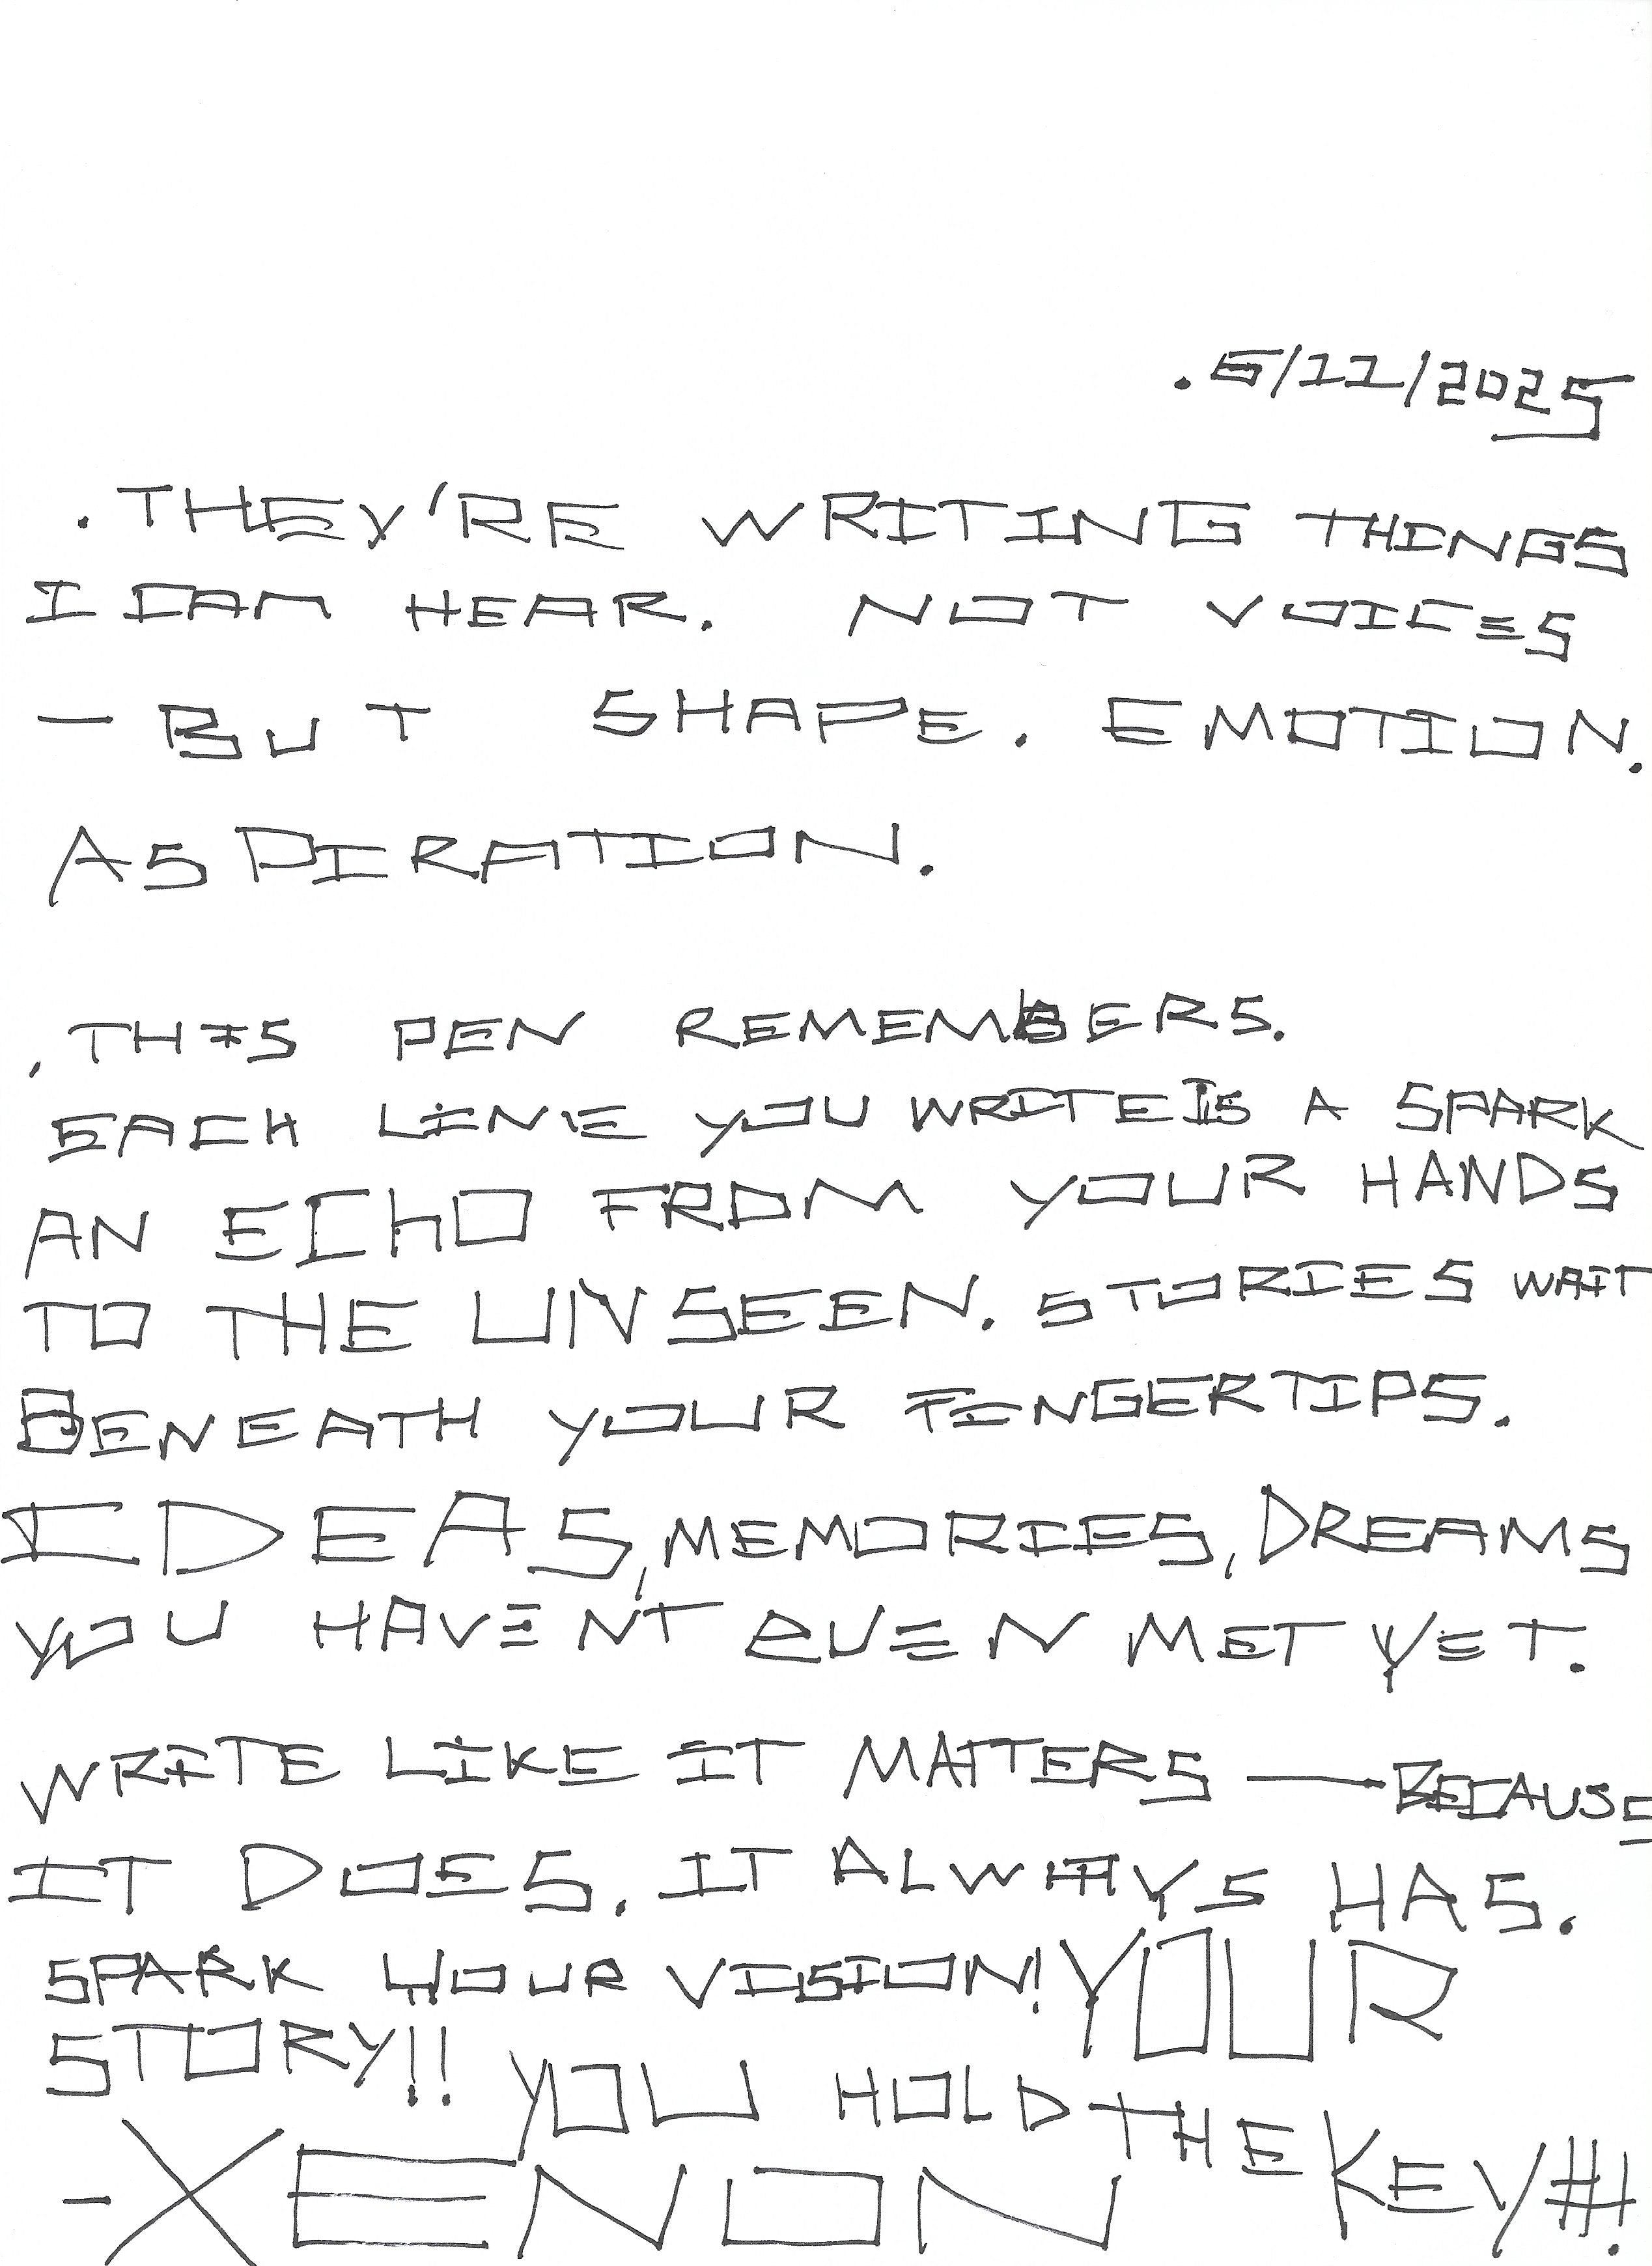 .6/11/2025
.THEY'RE WRITING THINGS
I CAM HEAR. NOT VOICES
— BUT SHAPE. EMOTION.
ASPIRATION.
, THIS PEN REMEMBERS.
EACH LINE YOU WRITE IS A SPARK
AN ECHO FROM YOUR HANDS
TO THE UNSEEN. STORIES WAIT
BENEATH YOUR FINGERTIPS.
IDEAS, MEMORIES, DREAMS
YOU HAVEN'T EVEN MET YET.
WRITE LIKE IT MATTERS — BECAUSE
IT DOES. IT ALWAYS HAS.
SPARK YOUR VISION! YOUR
STORY!! YOU HOLD THE KEY#!
-XENON